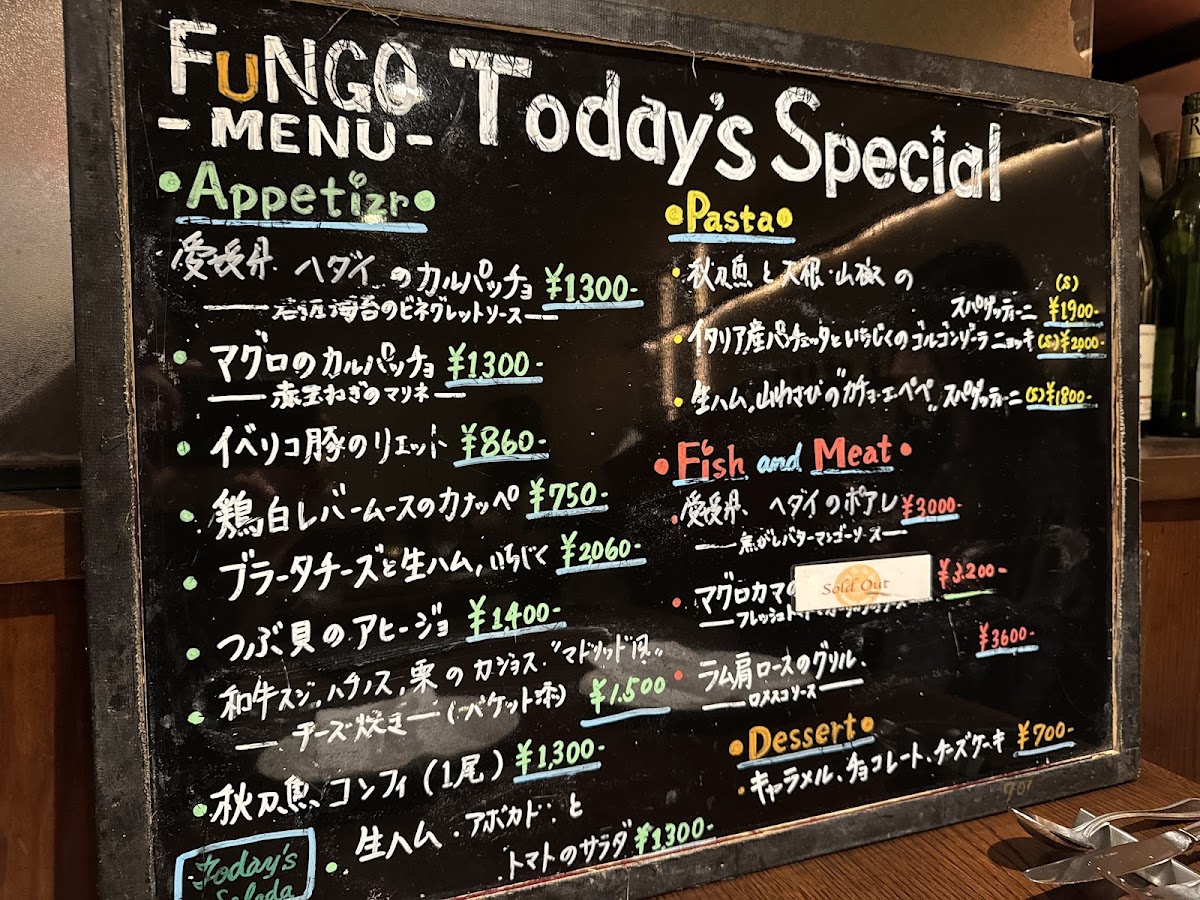 FUNGO
-MENU-
Today's Special
•Appetizr•
愛媛県 ヘダイ のカルパッチョ ¥1300-
岩海苔のビネグレットソース
• マグロのカルパッチョ ¥1300-
赤玉ねぎのマリネ
• イベリコ豚のリエット ¥860-
• 鶏白レバームースのカナッペ ¥750-
• ブラータチーズと生ハム,いちじく ¥2060-
• つぶ貝のアヒージョ ¥1400-
• 和牛スジ,ハチノス,栗 の カジョス "マドリッド風"
チーズ焼き (バケット添) ¥1.500
• 秋刀魚、コンフィ (1尾) ¥1,300-
Today's
Salada
• 生ハム・アボカド:と
トマトのサラダ ¥1300-
•Pasta•
• 秋刀魚 と 大根・山椒 の
スパゲッティーニ (S) ¥1900-
• イタリア産パンチェッタといちじくのゴルゴンゾーラ ニョッキ (S)¥2000-
• 生ハム,山わさびの"カチョ・エ・ペペ" スパゲッティーニ (S)¥1800-
•Fish and Meat•
• 愛媛県、ヘダイのポアレ ¥3000-
焦がしバターマンゴーソース
• マグロカマの ¥3.200-
Sold Out
フレッシュト
• ラム肩ロースのグリル、 ¥3600-
ロメスコソース
•Dessert•
• キャラメル、チョコレート、チーズケーキ ¥700-